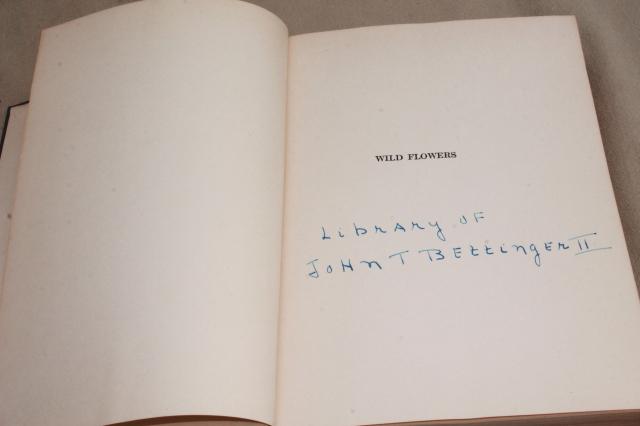 WILD FLOWERS
LibrAry OF
JOHN T BELLinger II